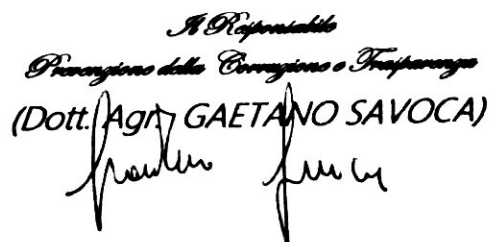 Il Responsabile
Prevenzione della Corruzione e Trasparenza
(Dott. Agr. GAETANO SAVOCA)